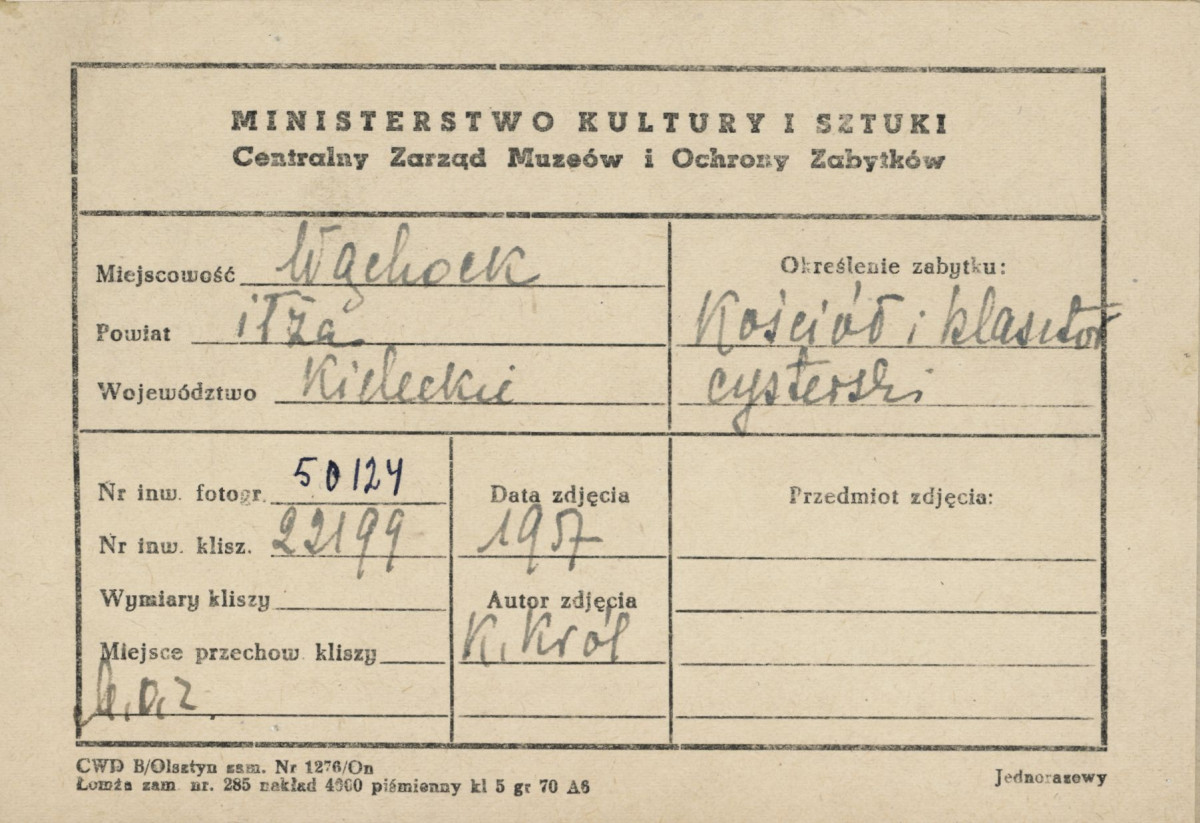 MINISTERSTWO KULTURY I SZTUKI
Centralny Zarząd Muzeów i Ochrony Zabytków
Miejscowość Wąchock
Powiat iłża
Województwo Kieleckie
Określenie zabytku:
Kościół i klasztor
cysterski
Nr inw. fotogr. 50124
Nr inw. klisz. 22199
Wymiary kliszy
Miejsce przechow. kliszy
Data zdjęcia
1957
Autor zdjęcia
K. Król
Przedmiot zdjęcia:
CWD B/Olsztyn zam. Nr 1276/On
Łomża zam. nr. 285 nakład 4000 piśmienny kl 5 gr 70 A6
Jednorazowy